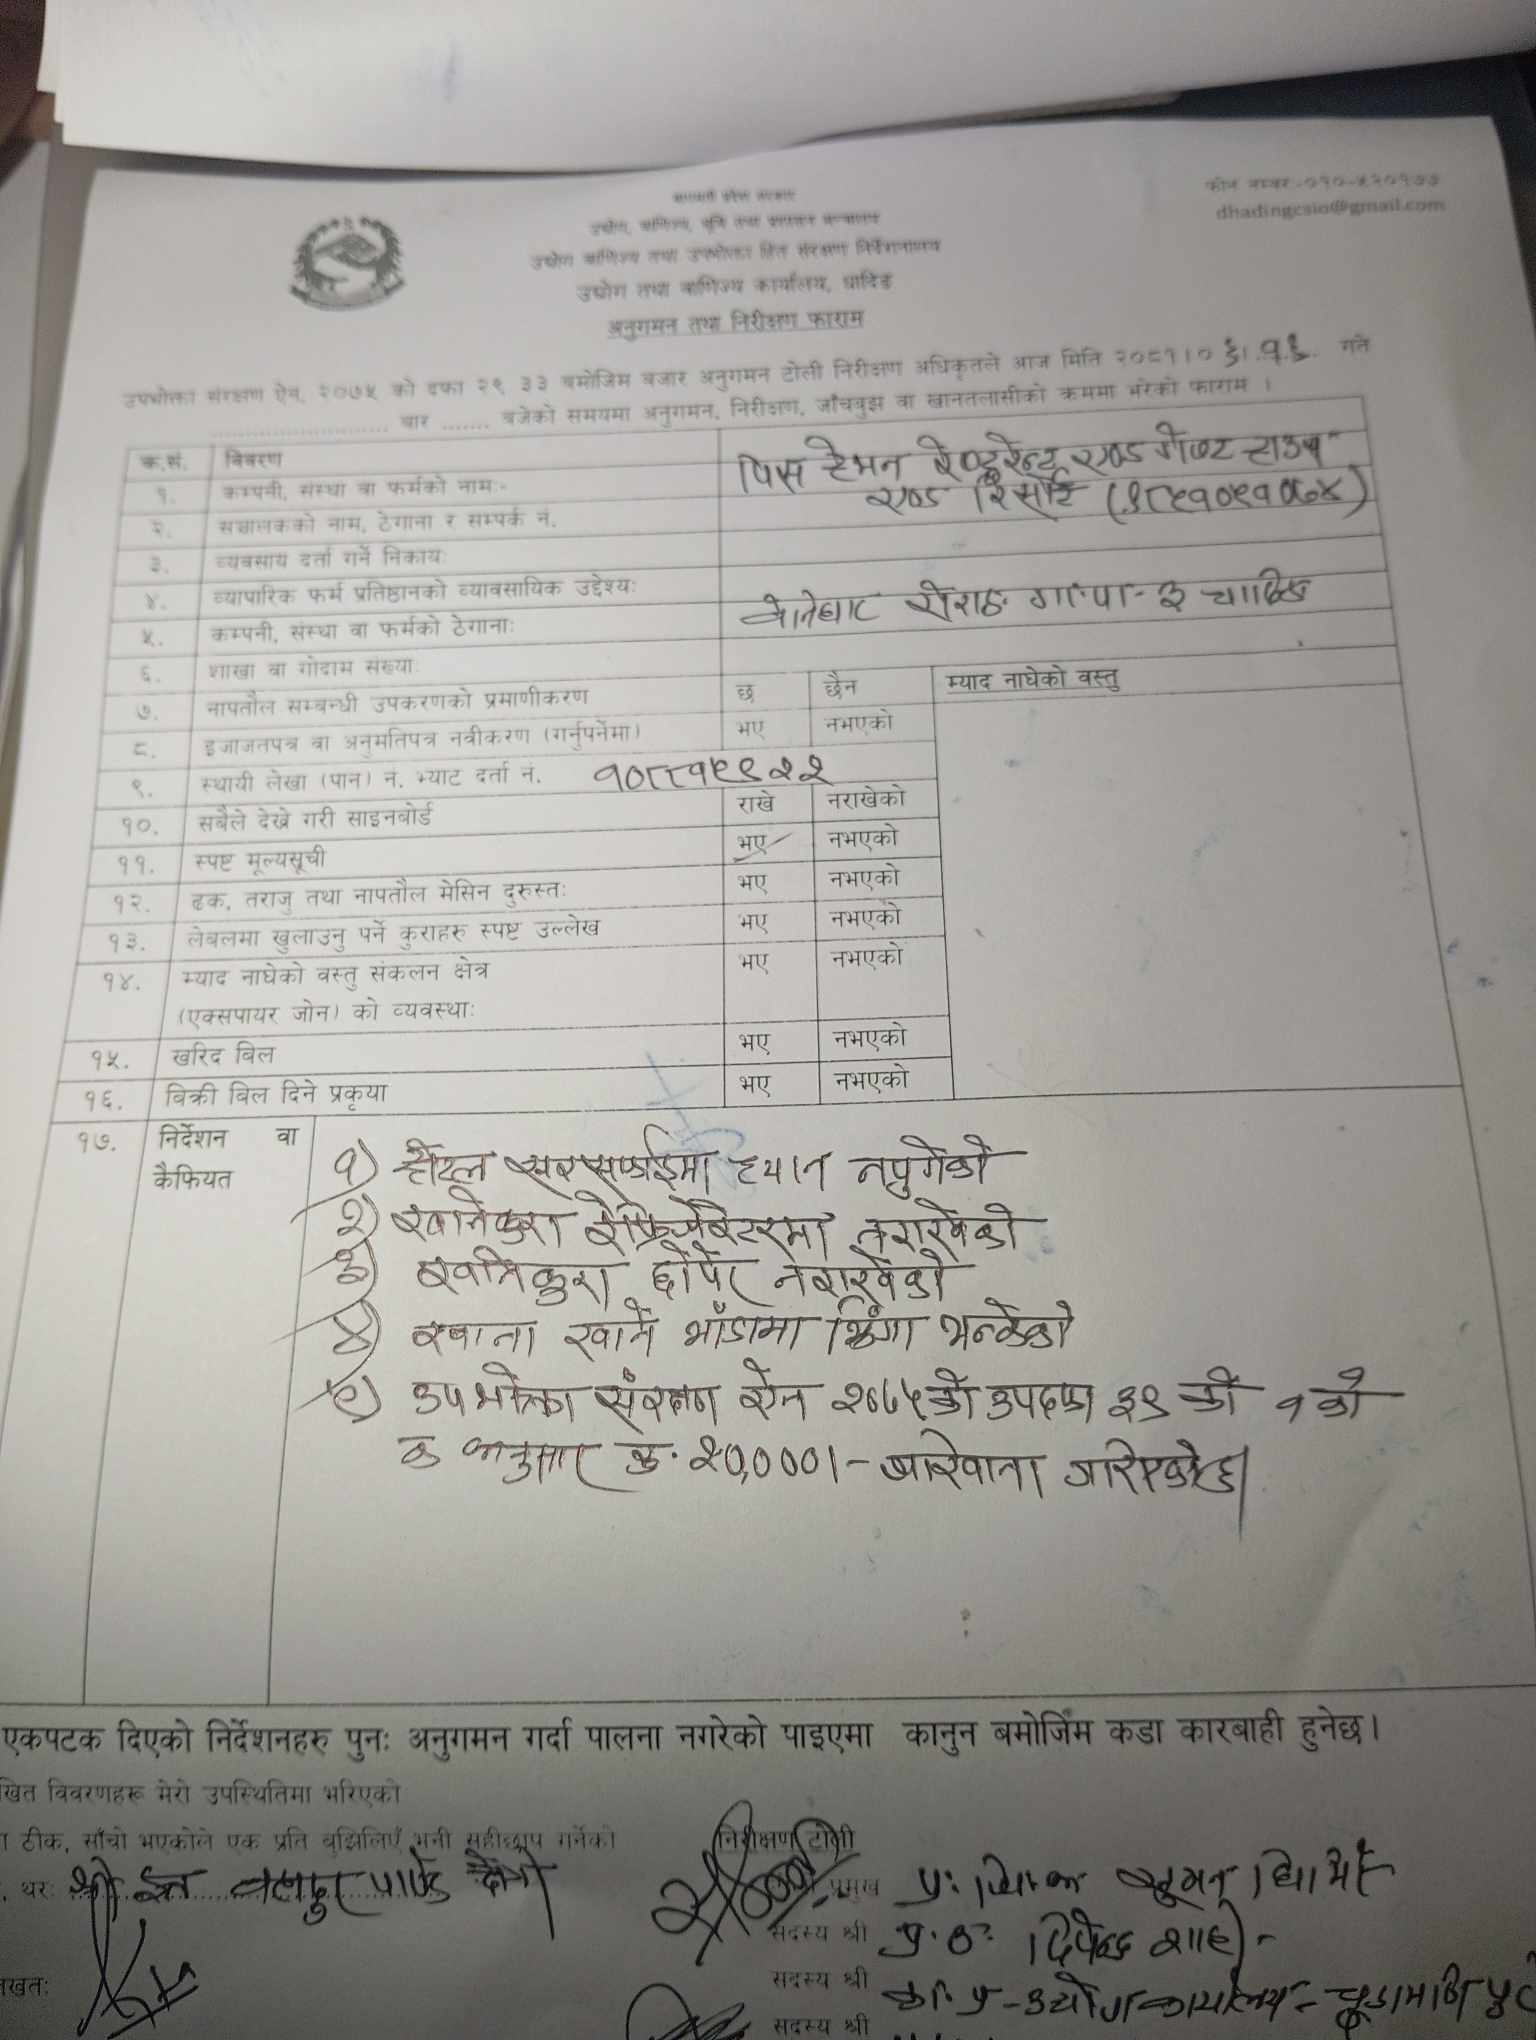 बागमती प्रदेश सरकार
उद्योग, वाणिज्य, भूमि तथा प्रशासन मन्त्रालय
उद्योग वाणिज्य तथा उपभोक्ता हित संरक्षण निर्देशनालय
उद्योग तथा वाणिज्य कार्यालय, धादिङ
अनुगमन तथा निरीक्षण फाराम
फोन नम्बर:-०१०-५२०१७७
dhadingcsio@gmail.com
उपभोक्ता संरक्षण ऐन, २०७५ को दफा २९ ३३ बमोजिम बजार अनुगमन टोली निरीक्षण अधिकृतले आज मिति २०८१।०६।१६ गते
बार ....... बजेको समयमा अनुगमन, निरीक्षण, जाँचबुझ वा खानतलासीको क्रममा भरेको फाराम ।
क.सं. विवरण
१. कम्पनी, संस्था वा फर्मको नाम:- पिस हेभन रेष्टुरेन्ट एण्ड गेष्ट हाउस
एण्ड रिसोर्ट (९८५१०५१०७४)
२. सञ्चालकको नाम, ठेगाना र सम्पर्क नं.
३. व्यवसाय दर्ता गर्ने निकाय:
४. व्यापारिक फर्म प्रतिष्ठानको व्यावसायिक उद्देश्य:
५. कम्पनी, संस्था वा फर्मको ठेगाना: गा.पा-३ धादिङ
६. शाखा वा गोदाम संख्या:
७. नापतौल सम्बन्धी उपकरणको प्रमाणीकरण छ छैन म्याद नाघेको वस्तु
८. इजाजतपत्र वा अनुमतिपत्र नवीकरण (गर्नुपर्नेमा) भए नभएको
९. स्थायी लेखा (पान) नं. भ्याट दर्ता नं. १०८८१९९२२
१०. सबैले देख्ने गरी साइनबोर्ड राखे नराखेको
११. स्पष्ट मूल्यसूची भए नभएको
१२. ढक, तराजु तथा नापतौल मेसिन दुरुस्त: भए नभएको
१३. लेबलमा खुलाउनु पर्ने कुराहरु स्पष्ट उल्लेख भए नभएको
१४. म्याद नाघेको वस्तु संकलन क्षेत्र भए नभएको
(एक्सपायर जोन) को व्यवस्था:
१५. खरिद बिल भए नभएको
१६. बिक्री बिल दिने प्रकृया भए नभएको
१७. निर्देशन वा
कैफियत
१) होटल सरसफाईमा ध्यान नपुगेको
२) खानेकुरा रेफ्रिजेरेटरमा नराखेको
३) खानेकुरा छोपेर नराखेको
४) खाना खाने भाँडामा झिंगा भन्केको
५) उपभोक्ता संरक्षण ऐन २०७५को उपदफा ३९ को १ को
क अनुसार रु. २०,०००।- जरिवाना गरिएको छ।
एकपटक दिएको निर्देशनहरु पुनः अनुगमन गर्दा पालना नगरेको पाइएमा कानुन बमोजिम कडा कारबाही हुनेछ।
खित विवरणहरू मेरो उपस्थितिमा भरिएको
ठीक, साँचो भएकोले एक प्रति बुझिलिएँ भनी सहीछाप गर्नेको
निरीक्षण टोली
थर: श्री
प्रमुख
सदस्य श्री
सदस्य श्री का.प्र-उद्योग कार्यालय-
सदस्य श्री
खत: